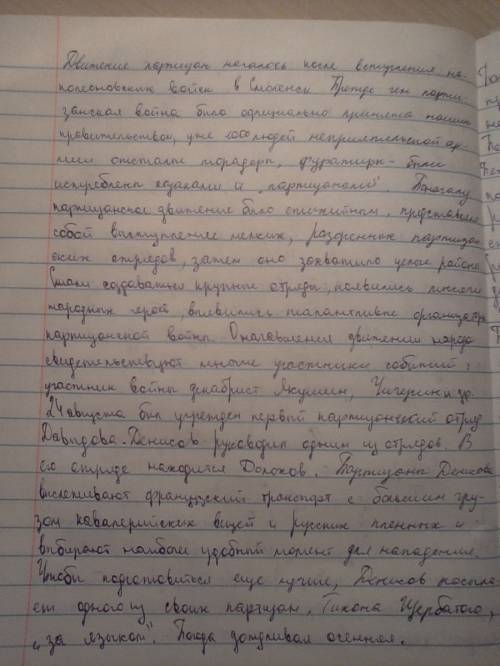 Движение партизан началось после вступления на-
полеоновских войск в Смоленск. Прежде чем парти-
занская война была официально принята нашим
правительством, уже 1000 людей неприятельской ар-
мии отсталые мородеры, фуражиры - были
истреблены казаками и "партизанами". Поначалу
партизанское движение было стихийным, представляло
собой выступление мелких, разрозненных партизан
ских отрядов, затем оно захватило целые районы
Стали создаваться крупные отряды, появились
народных герой, выявились талантливые организаторы
партизанской войны. О начавшемся движении народа
свидетельствуют многие участники событий:
участник войны декабрист Якушкин, Чичерин и др.
24 августа был учрежден первый партизанский отряд
Давыдова. Денисов руководил одним из отрядов. В
его отряде находится Долохов. Партизаны Денисова
выслеживают французский транспорт с большим гру-
зом кавалерийских вещей и русских пленных и
выбирают наиболее удобный момент для нападения.
Чтобы подготовиться еще лучше, Денисов посыла-
ет одного из своих партизан, Тихона Щербатого,
"за языком". Погода дождливая осенняя.